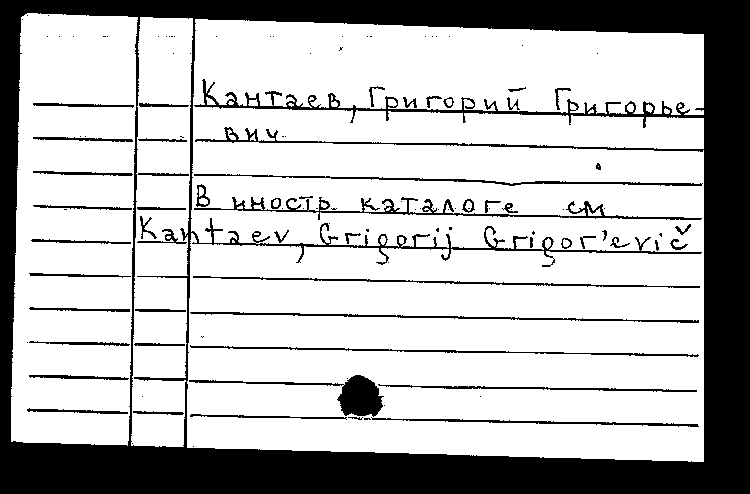 Кантаев, Григорий Григорье-
вич
В иностр. каталоге см
Kantaev, Grigorij Grigor'evič